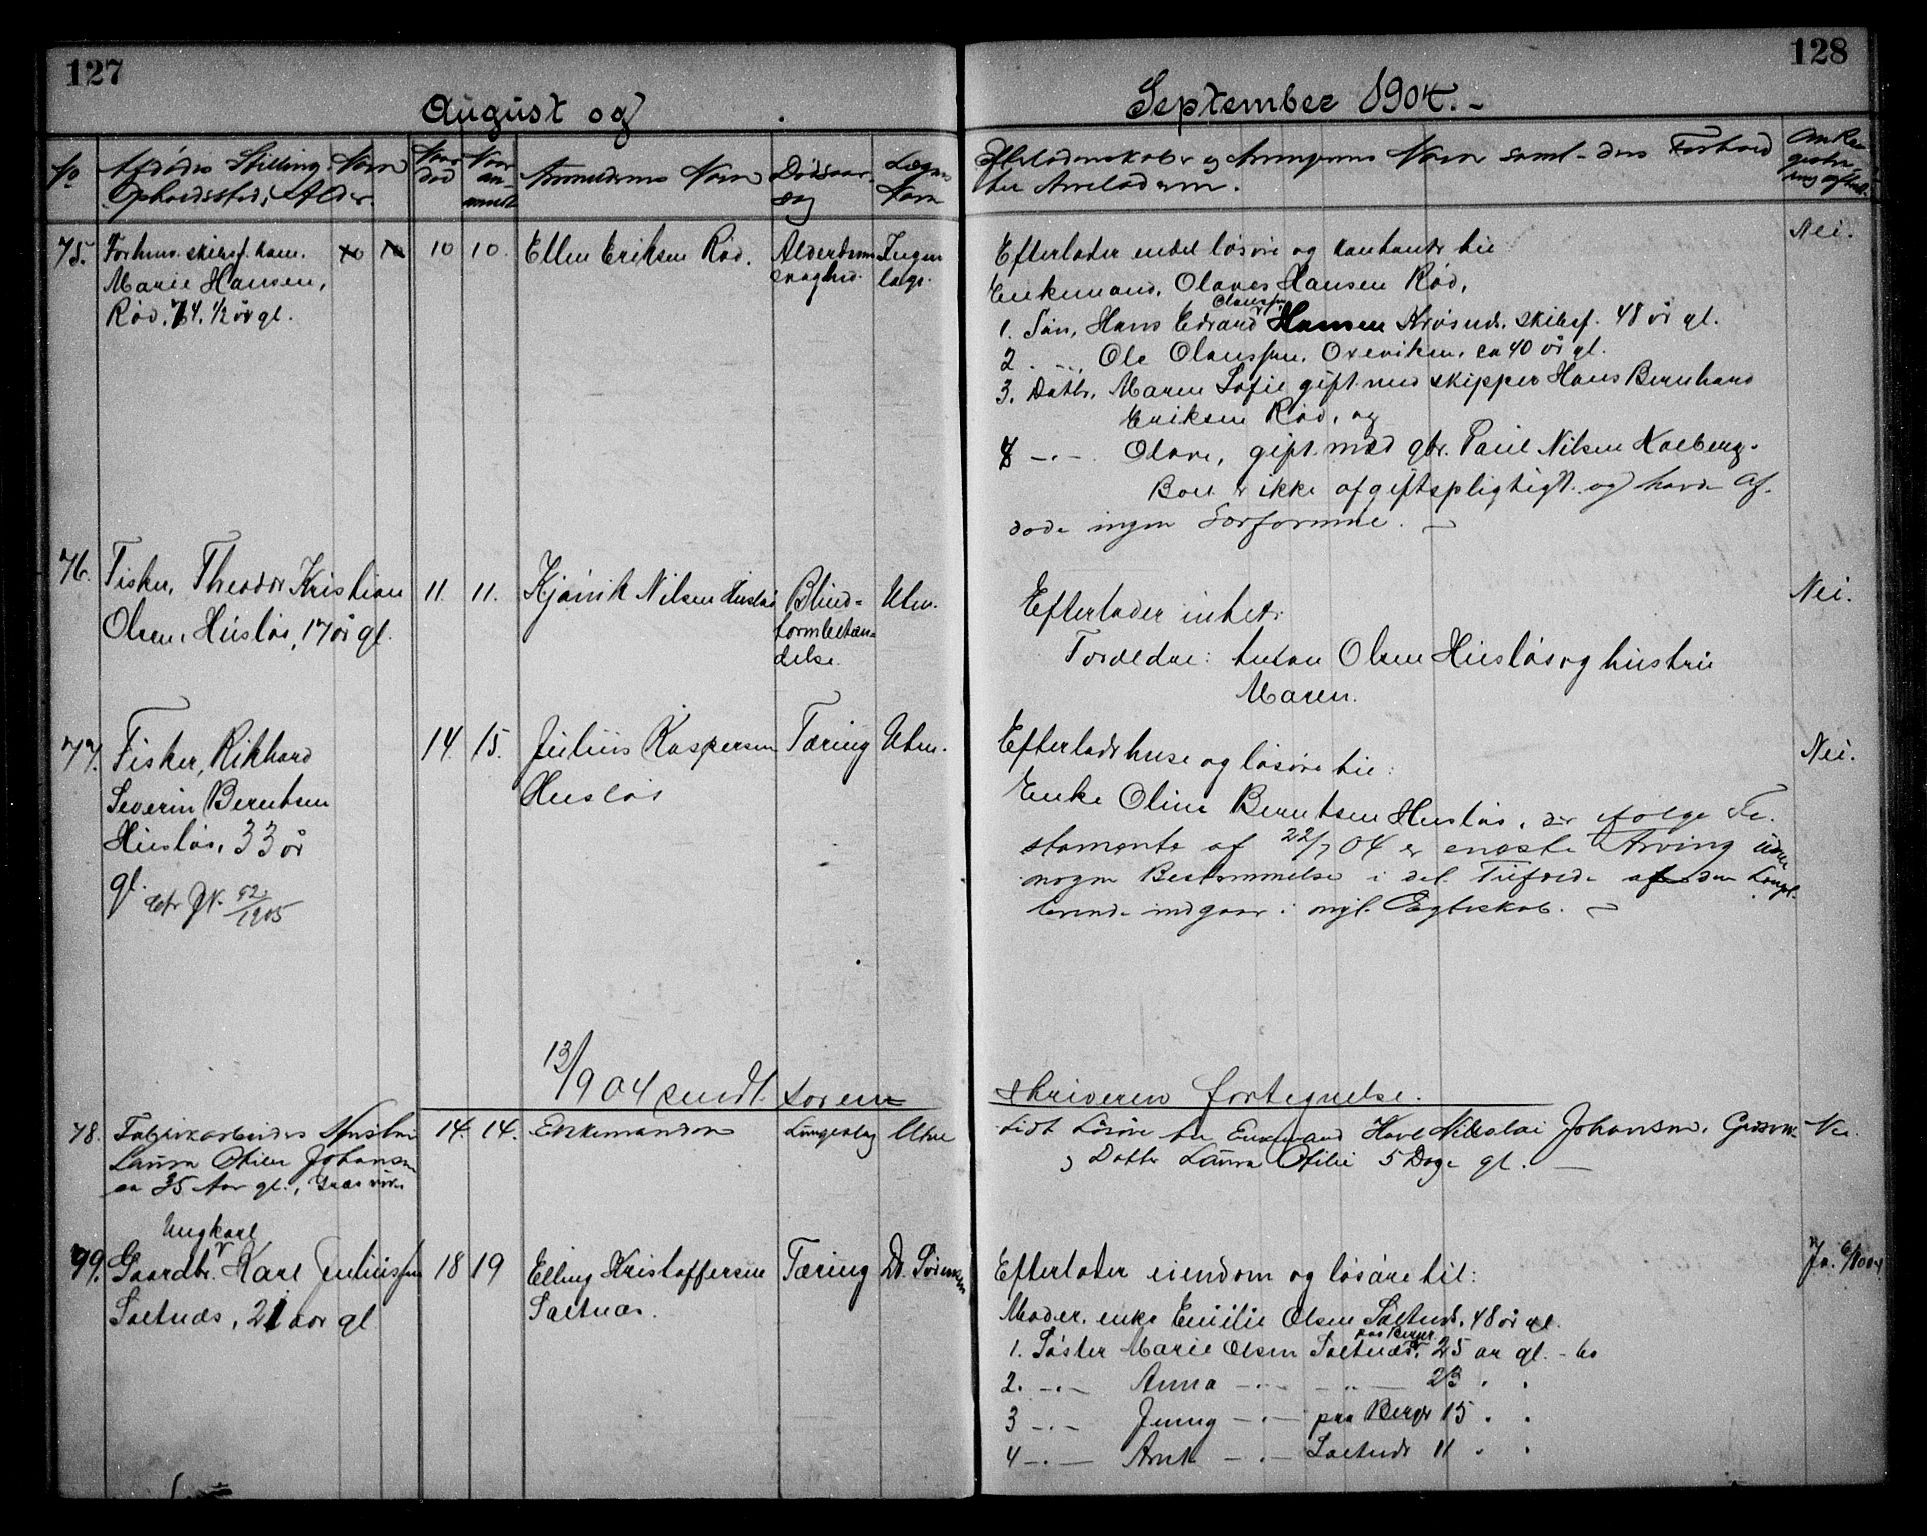 127
128
August og
September 1904.-
No
Afdødes Stilling, Navn
Opholdssted, Alder.
Naar
død
Naar
an-
meldt
Anmelderens Navn
Dødsaar-
sag
Læges
Navn
Efterladenskaber og Arvingernes Navn samt deres Forhold
til Arveladeren.
75.
Forhenv. skibsf. kone.
Marie Hansen,
Rød, 74. 1/2 år gl.
10
10
Ellen Eriksen Rød.
Alderdoms
svaghed.
Ingen
læge.
Efterlader endel løsøre og kontanter til
Enkemand, Olaves Hansen Rød,
Olaussen
1. Søn, Hans Edvard Hansen Krøsnes. skibsf. 48 år gl.
2 -"- Ole Olaussen, Oreviken, ca 40 år gl.
3. Datter, Maren Sofie gift med skipper Hans Bernhard
Eriksen Rød, og
4 -"- Olave, gift med gbr. Paul Nilsen Kolberg.
Boet er ikke afgiftspligtigt og havde Af-
døde ingen Særformue.
Nei.
76.
Fisker, Theodor Kristian
Olsen, Husløs, 17 år gl.
11.
11.
Kjønik Nilsen Husløs
Blind-
tarmbetæn-
delse.
Uten.
Efterlader intet.
Forældre: Anton Olsen Husløs og hustru
Maren.
Nei.
77.
Fisker, Rikhard
Severin Berntsen
Husløs, 33 år
gl.
92/1905
14.
15.
Julius Kaspersen
Husløs
Tæring
Uten.
Efterlader huse og løsøre til:
Enke Oline Berntsen Husløs, der ifølge Te-
stamente af 22/7 04 er eneste Arving uden
nogen Bestemmelse i det Tilfælde af den Længst-
levende indgaar i nyt Egteskab.
Nei.
13/9 04 sendt Soren-
skriveren fortegnelse.
78.
Fabrikarbeiders Hustru
Laura Otilie Johansen
ca 35 Aar gl.,
14.
14.
Enkemanden
Lungeslag
Uten
Lidt Løsøre til Enkemand Karl Nikolai Johansen,
og Datter Laura Otilie 5 Dage gl.
Nei.
79.
Ungkarl
Gaardbr. Karl Juliussen
Saltnæs, 21 aar gl
18
19
Elling Kristoffersen
Saltnæs.
Tæring
Dr. Sørensen
Efterlader eiendom og løsøre til:
Moder, enke Emilie Olsen Saltnæs, 48 år gl.
paa Berger
1. Søster Marie Olsen Saltnæs, 25 ar gl.
2. -"- Anna -"- -"- 23 " "
3 -"- Jenny -"- paa Berger 15 " "
4 -"- -"- Saltnæs 11 " "
Ja.